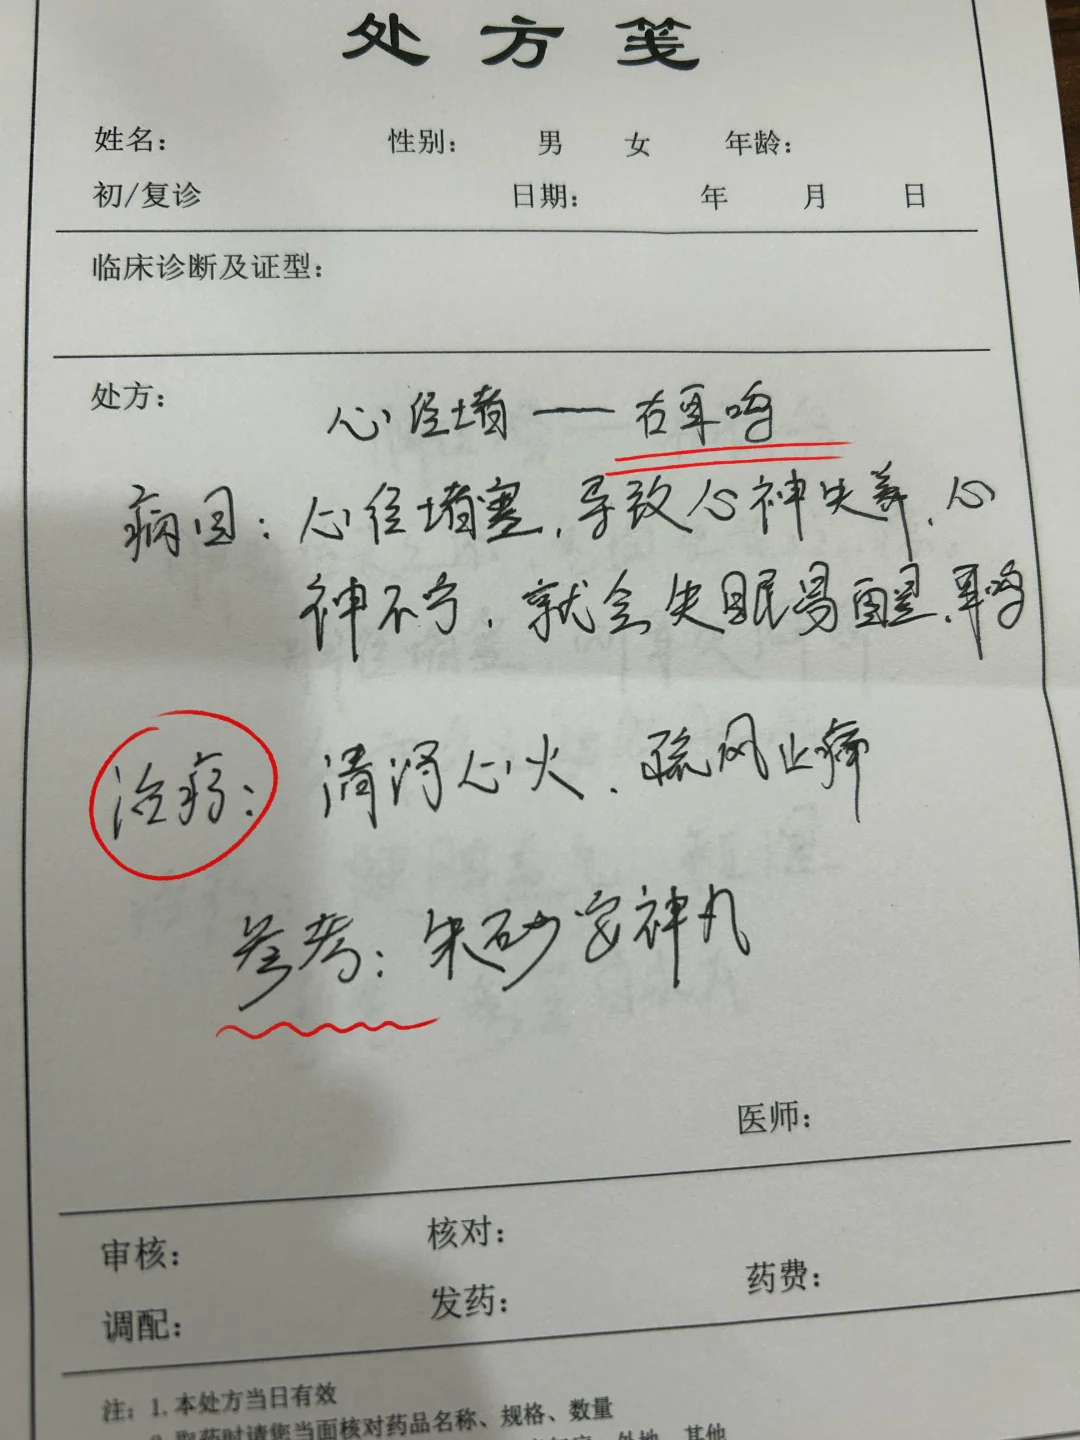 处方笺
姓名： 性别： 男 女 年龄：
初/复诊 日期： 年 月 日
临床诊断及证型：
处方：
心经堵——右耳鸣
病因：心经堵塞，导致心神失养，心
神不宁，就会失眠易醒，耳鸣
治疗：清泻心火、疏风止痛
参考：朱砂安神丸
医师：
审核： 核对：
调配： 发药： 药费：
注：1.本处方当日有效
2.取药时请您当面核对药品名称、规格、数量
外地、其他